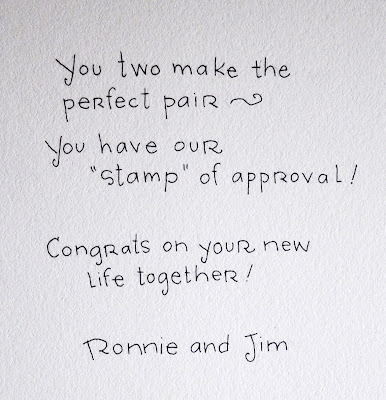 You two make the
perfect pair ~
You have our
"stamp" of approval!
Congrats on your new
life together!
Ronnie and Jim